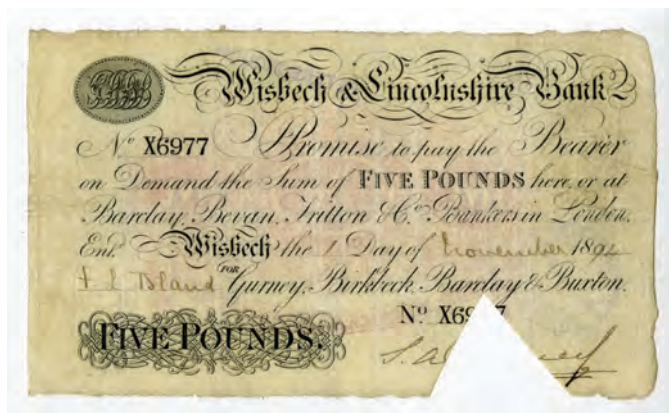 Wisbech & Lincolnshire Bank
No X6977 I Promise to pay the Bearer
on Demand the Sum of FIVE POUNDS here, or at
Barclay, Bevan, Tritton & Co. Bankers in London.
Entd. Wisbech the 1 Day of November 1894
Bland FOR Gurney, Birkbeck, Barclay & Buxton.
No X69 7
FIVE POUNDS.